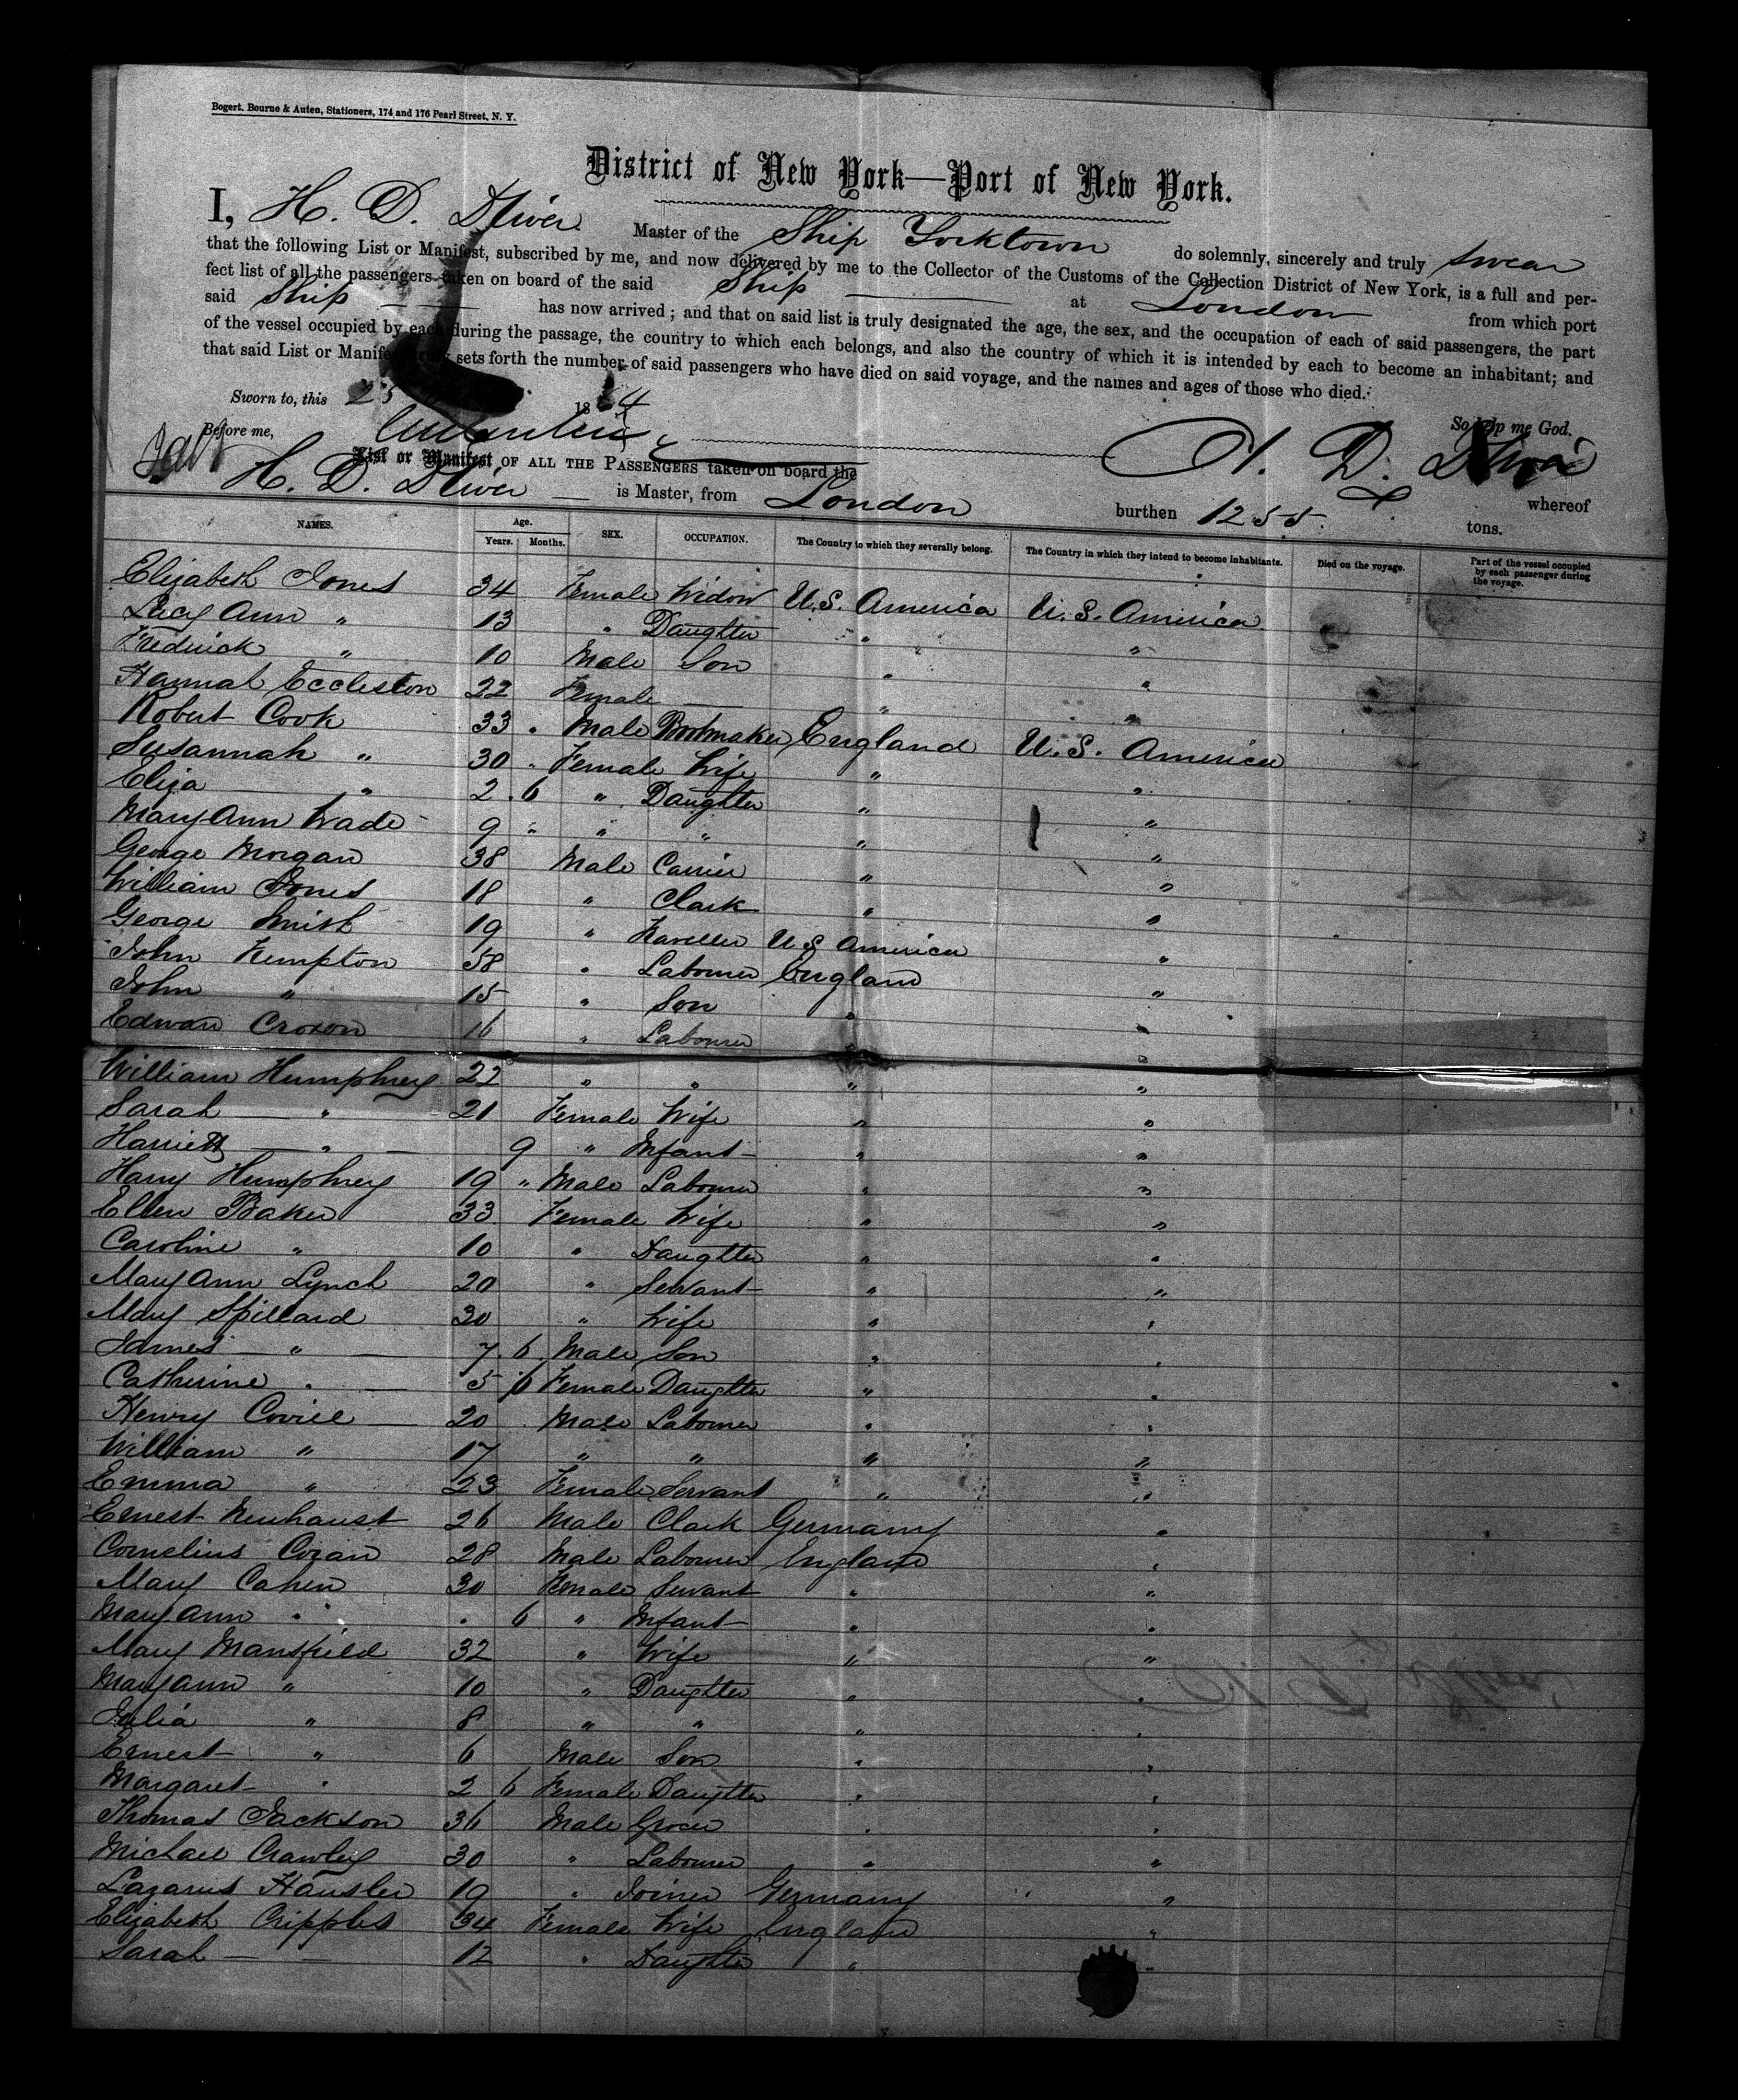 Bogert, Bourne & Auten, Stationers, 174 and 176 Pearl Street, N. Y.
District of New York—Port of New York.
I, H. D. Master of the Ship Yorktown do solemnly, sincerely and truly swear
that the following List or Manifest, subscribed by me, and now delivered by me to the Collector of the Customs of the Collection District of New York, is a full and per-
fect list of all the passengers taken on board of the said Ship at London from which port
said Ship has now arrived; and that on said list is truly designated the age, the sex, and the occupation of each of said passengers, the part
of the vessel occupied by each during the passage, the country to which each belongs, and also the country of which it is intended by each to become an inhabitant; and
that said List or Manifest truly sets forth the number of said passengers who have died on said voyage, and the names and ages of those who died.
Sworn to, this 23 18 4 So help me God,
Before me, H. D.
List or Manifest OF ALL THE PASSENGERS taken on board the whereof
H. D. is Master, from London burthen 1255 tons.
NAMES. Age. Years. Months. SEX. OCCUPATION. The Country to which they severally belong. The Country in which they intend to become inhabitants. Died on the voyage. Part of the vessel occupied by each passenger during the voyage.
Elizabeth Jones 34 Female Widow U.S. America U.S. America
Lucy Ann " 13 " Daughter " "
Frederick " 10 Male Son " "
Hannah Eccleston 22 Female " "
Robert Cook 33 " Male Bootmaker England U.S. America
Susannah " 30 " Female Wife " "
Eliza " 2 6 " Daughter " "
Mary Ann Wade 9 " " " " "
George Morgan 38 Male Carrier " "
William Jones 18 " Clark " "
George Smith 19 " U S America "
John Kempton 58 " Labourer England "
John " 15 " Son " "
Edwan Croxon 16 " Labourer " "
William Humphrey 22 " " " "
Sarah " 21 Female Wife " "
Harriett " 9 " Infant " "
Harry Humphrey 19 " Male Labourer " "
Ellen Baker 33 Female Wife " "
Caroline " 10 " Daughter " "
Mary Ann Lynch 20 " Servant " "
Mary Spillard 30 " Wife " "
James " 7 6 Male Son " "
Catherine " 5 6 Female Daughter " "
Henry 20 Male Labourer " "
William " 17 " " " "
Emma " 23 Female Servant " "
Ernest Neuhaust 26 Male Clark Germany "
Cornelius Coran 28 Male Labourer England "
Mary Cahen 30 Female Servant " "
Mary Ann " " 6 " Infant " "
Mary Mansfield 32 " Wife " "
Mary Ann " 10 " Daughter " "
Julia " 8 " " " "
Ernest " 6 Male Son " "
Margaret " 2 6 Female Daughter " "
Thomas Jackson 36 Male Grocer " "
Michael Crawley 30 " Labourer " "
Lazarus Hausler 19 " Joiner Germany "
Elizabeth Cripples 34 Female Wife England "
Sarah 12 " Daughter " "